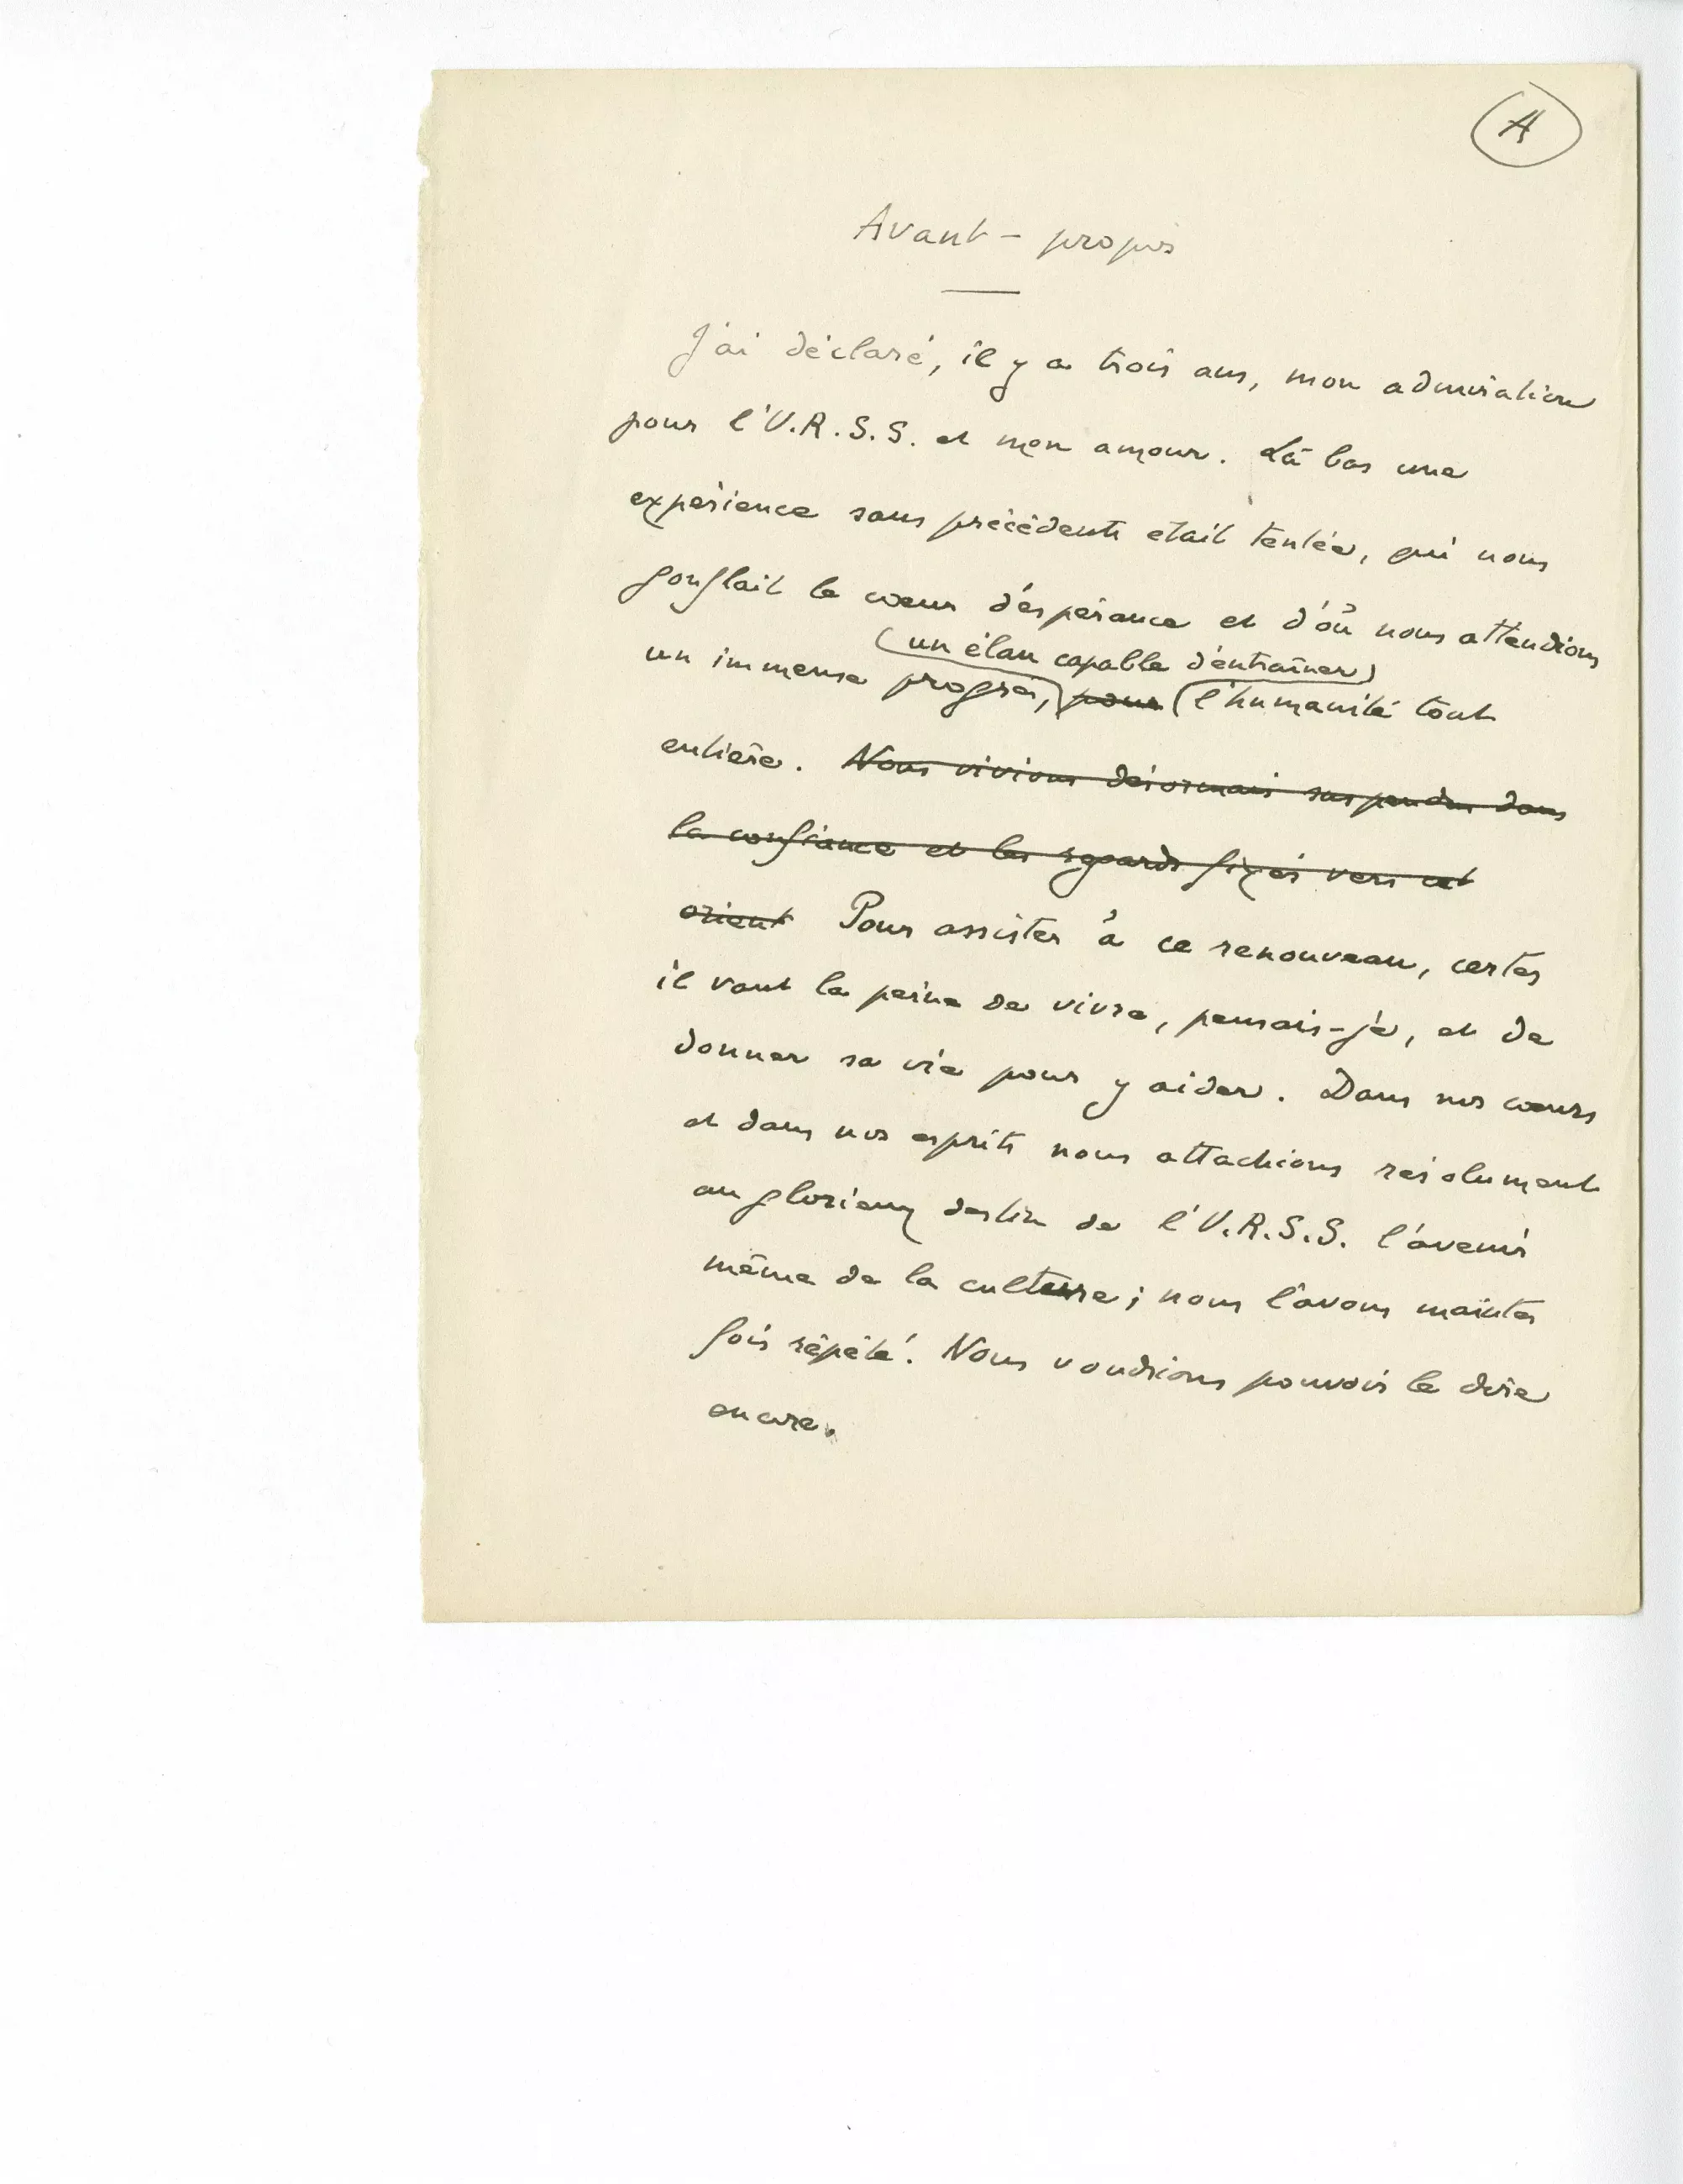 A
Avant-propos
J'ai déclaré, il y a trois ans, mon admiration
pour l'U.R.S.S. et mon amour. Là bas une
expérience sans précédents était tentée, qui nous
gonflait le cœur d'espérance et d'où nous attendions
un élan capable d'entraîner
un immense progrès, pour l'humanité tout
entière. Nous vivions désormais suspendus dans
la confiance et les regards fixés vers cet
orient Pour assister à ce renouveau, certes
il vaut la peine de vivre, pensais-je, et de
donner sa vie pour y aider. Dans nos cœurs
et dans nos esprits nous attachions résolument
au glorieux destin de l'U.R.S.S. l'avenir
même de la culture; nous l'avons maintes
fois répété. Nous voudrions pouvoir le dire
encore.